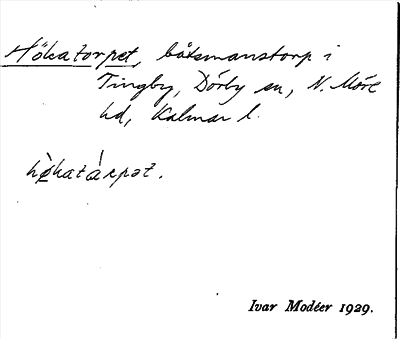 Hökatorpet, båtsmanstorp i
Tingby, Dörby sn, N. Möre
hd, Kalmar l.
hø̀katárpət.
Ivar Modéer 1929.